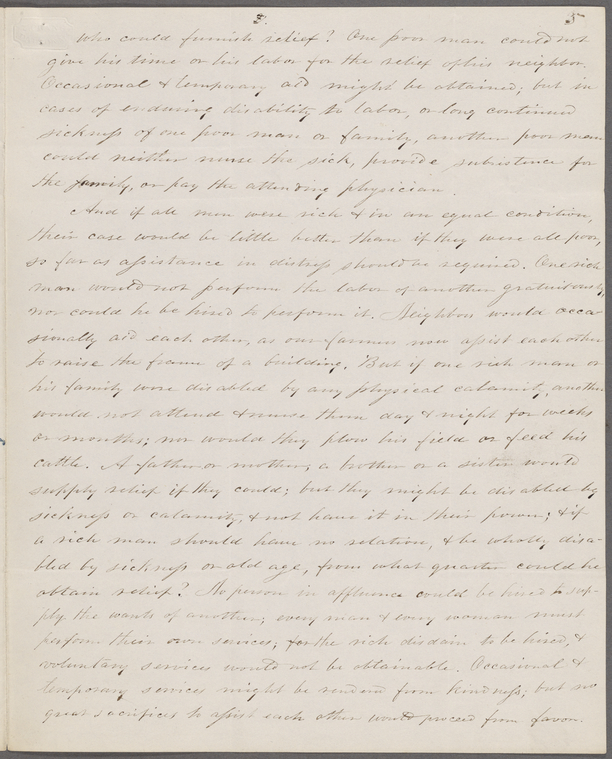 5. 5
who could furnish relief? One poor man could not
give his time or his labor for the relief of his neighbor.
Occasional & temporary aid might be obtained; but in
cases of enduring disability to labor, or long continued
sickness of one poor man or family, another poor man
could neither nurse the sick, provide subsistence for
the family, or pay the attending physician.
And if all men were rich & in an equal condition,
their case would be little better than if they were all poor,
so far as assistance in distress should be required. One rich
man would not perform the labor of another gratuitously
nor could he be hired to perform it. Neighbors would occa
sionally aid each other, as our farmers now assist each other
to raise the frame of a building. But if one rich man or
his family were disabled by any physical calamity, another
would not attend & nurse them day & night for weeks
or months; nor would they plow his field or feed his
cattle. A father or mother, a brother or a sister would
supply relief if they could; but they might be disabled by
sickness or calamity, & not have it in their power; & if
a rich man should have no relation, & be wholly disa-
bled by sickness or old age, from what quarter could he
obtain relief? No person in affluence could be hired to sup-
ply the wants of another; every man & every woman must
perform their own services; for the rich disdain to be hired, &
voluntary services would not be obtainable. Occasional &
temporary services might be rendered from kindness; but no
great sacrifices to assist each other would proceed from favor.